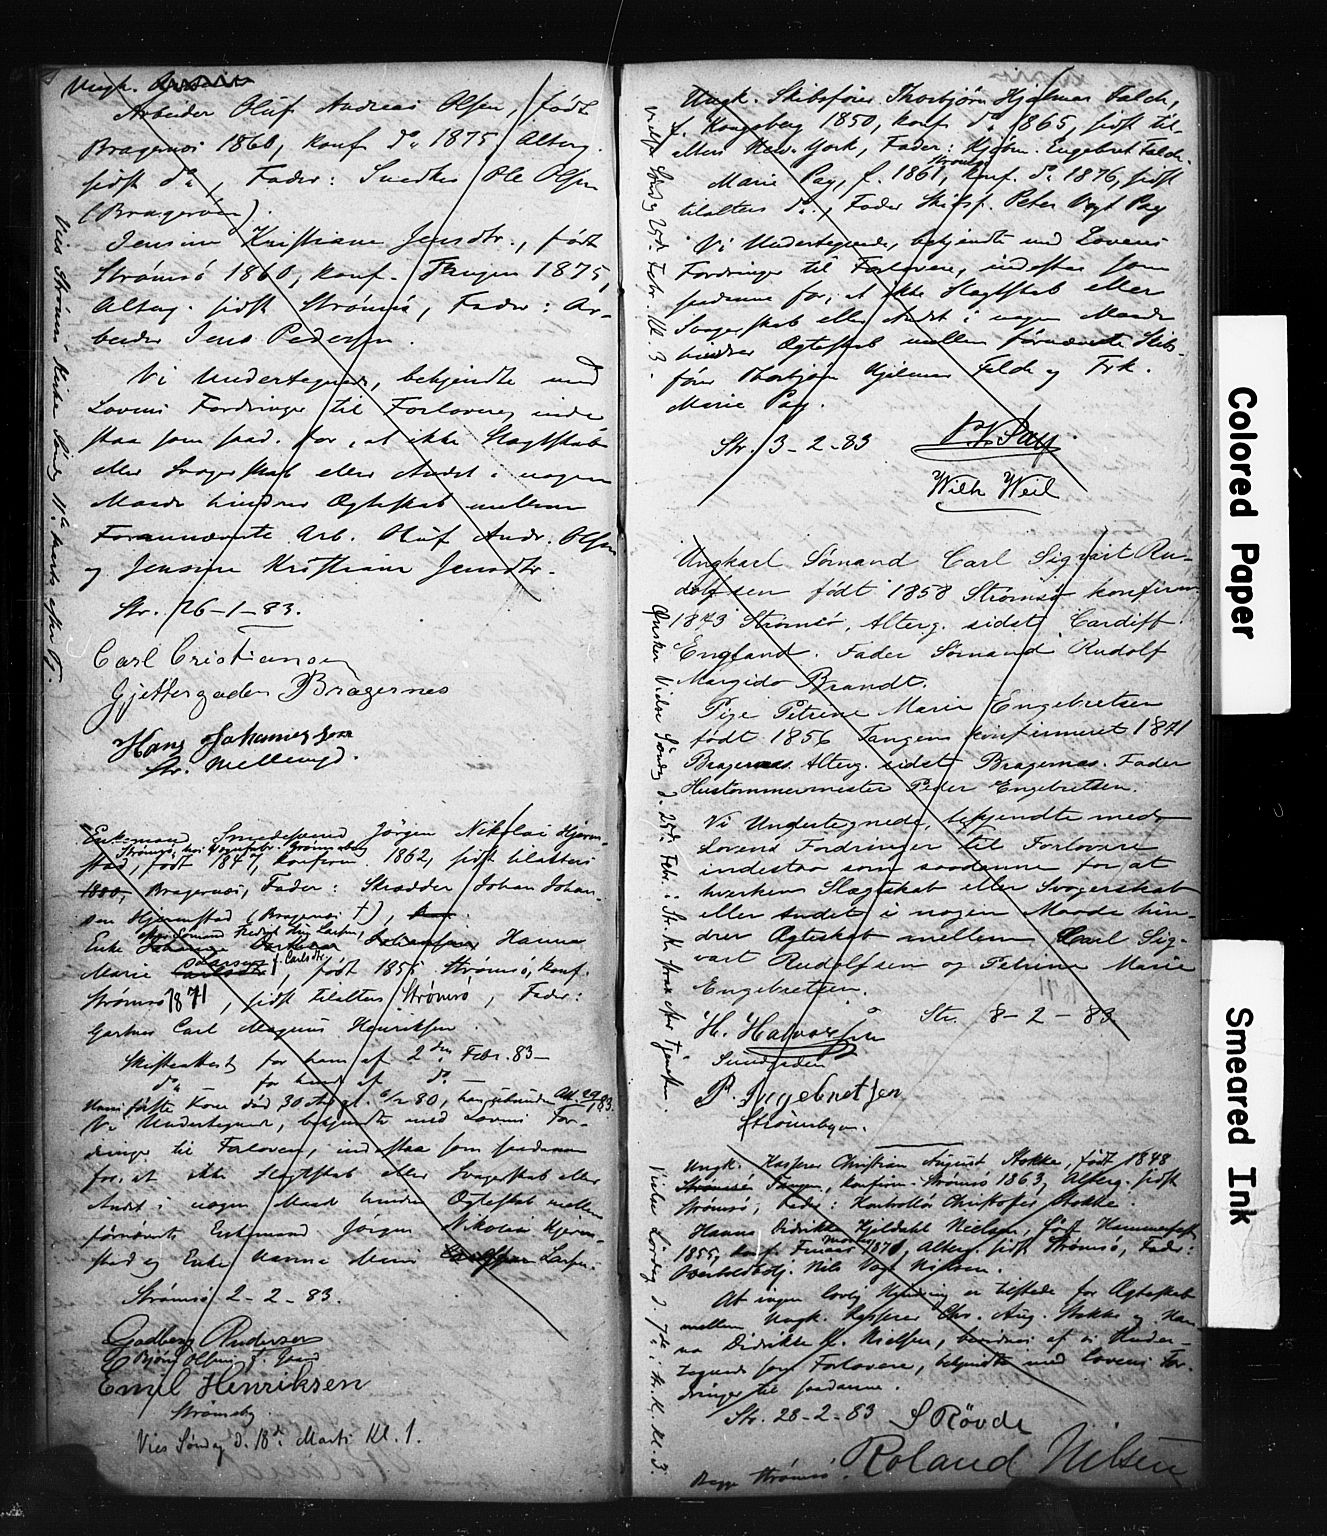 Ungk.
Arbeider Oluf Andreas Olsen, født
Bragernæs 1860, konf do 1875 Alterg.
sidst do, Fader: Snedker Ole Olsen
(Bragernæs).
Jensine Kristiane Jensdtr., født
Strømsø 1860, konf. Tangen 1875,
Alterg. sidst Strømsø, Fader: Ar-
beider Jens Pedersen.
Vi Undertegnede, bekjendte med
Lovens Fordringer til Forlovere, inde
staa som saad. for, at ikke Slægtskab
eller Svogerskab eller Andet i nogen
Maade hindrer Ægteskab mellem
Fornævnte Arb. Oluf Andr. Olsen
og Jensine Kristiane Jensdtr.
Str. 26-1-83.
Carl Cristiansen
Gjettergaden Bragernes
Hans Johannessen
Str.
Vies Strømsø Kirke Søndag 11te Marts efter Tj.
Enkemand Smedesvend Jörgen Nikolai Hjerm-
Strømsø,
stad, født 1847, konfirm. 1862, sidst tilalters
Bragernæs, Fader: Skrædder Johan Johan-
sen Hjermstad (Bragernæs †),
Enke Hanna
Marie Larsen f. Carlsdtr, født 1855 Strømsø, konf.
Strømsø 1871, sidst tilalters Strømsø, Fader:
Gartner Carl Magnus Henriksen.
Skifteattest for ham af 2den Febr. 83 -
do for hende af do -
Hans første Kone død 30
Vi Undertegnede, bekjendte med Lovens For-
dringer til Forlovere, indestaa som saadanne
for, at ikke Slægtskab eller Svogerskab eller
Andet i nogen Maade hindrer Ægteskab mellem
førnævnte Enkemand Jörgen Nikolai Hjerm-
stad og Enke Hanna Marie Larsen.
Strømsø 2-2-83.
Gulberg Andersen
Emil Henriksen
Strømsby
Vies Søndag d. 18de Marts Kl. 1.
Ungk. Skibsfører Thorbjørn Hjalmar Falch,
f. Kongsberg 1850, konf do 1865, sidst til-
alters New-York, Fader: Kjøbm. Engebret Falch.
Strømsø
Marie Pay, f. 1861, konf. do 1876, sidst
tilalters do, Fader Skibsf. Peter Vogt Pay
Vi Undertegnede, bekjendte med Lovens
Fordringer til Forlovere, indestaa som
saadanne for, at ikke Slægtskab eller
Svogerskab eller Andet i nogen Maade
hindrer Ægteskab mellem førnævnte Skibs-
fører Thorbjørn Hjalmar Falch og Frk.
Marie Pay.
Str. 3-2-83
P. V. Pay
Wilh Weil
Vielse Søndag 25de Febr. Kl. 3.
Ungkarl Sømand Carl Sigvart Ru-
dolfsen født 1858 Strømsø konfirm.
1873 Strømsø, Alterg. sidst Cardiff
England. Fader Sømand Rudolf
Margido Brandt.
Pige Petrine Marie Engebretsen
født 1856 Tangen konfirmeret 1871
Bragernæs. Alterg. sidst Bragernæs. Fader
Hustømmermester Peder Engebretsen.
Vi Undertegnede, bekjendte med
Lovens Fordringer til Forlovere
indestaa som saadanne for at
hverken Slægtskab eller Svogerskab
eller Andet i nogen Maade hin-
drer Ægteskab mellem Carl Sig-
vart Rudolfsen og Petrine Marie
Engebretsen.
Str. 8-2-83
H. Halvorsen
P. Ingebretsen
Strømsbyen.
Ønsker Vielse Søndag d. 25de Febr. i Str. K. strax efter Tjenesten.
Ungk. Kasper Christian August Stokke, født 1848
Tangen, konfirm. Strømsø 1863, Alterg. sidst
Strømsø, Fader: Kontrollør Christoffer Stokke.
Hanna Didrikke Kjeldahl Nielsen, født Hammerfest
1855, konf. 1870, Alterg. sidst Strømsø, Fader:
Nils Vogt Nielsen.
At ingen lovlig Hindring er tilstede for Ægteskab
mellem Ungk. Kasper Chr. Aug. Stokke og Han-
na Didrikke K. Nielsen, bevidnes af vi Under-
tegnede som Forlovere, bekjendte med Lovens For-
dringer til saadanne.
Str. 28-2-83
S Røvde
Roland Nilsen
Strømsø.
Vielse Lørdag d. 7de i Str. K. Kl. 3.
Colored Paper
Smeared Ink